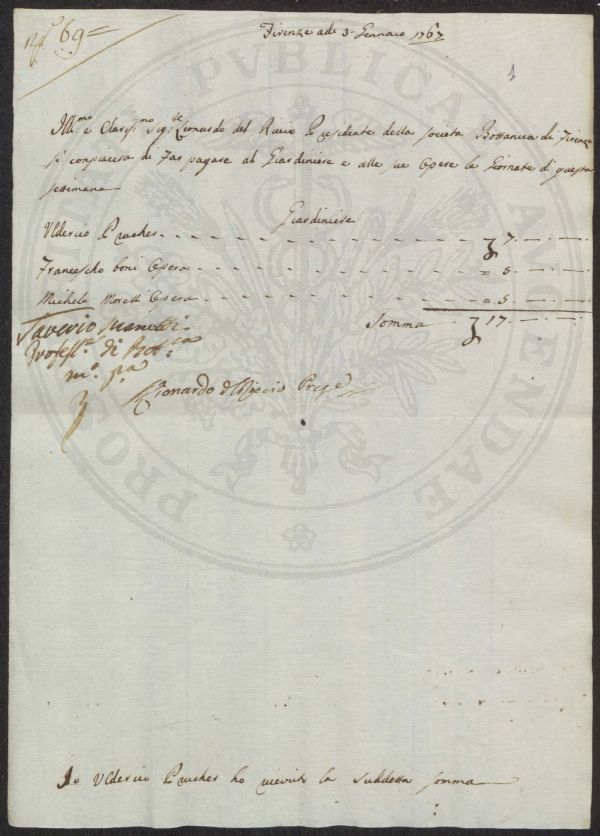 N° 69=
Firenze adi 3 Gennaio 1767
1
Ill.mo e Clariss.mo Sig.re Leonardo del Riccio Presidente della Societa Bottanica di Firenze
si conpiacera di Far pagare al Giardiniere e alle sue Opere le Giornate di questa
settimana
Giardiniere
Ulderico Prucher - - - 7. — . —
Francescho boni Opera - - - = 5. — . —
Michele Morelli Opera - - - = 5. — . —
Somma — 17. — . —
Saverio Manetti
Profess.re di Bot.ca
m.o p.a
Leonardo del Riccio Pres.e
Io Ulderico Prucher ho ricevuto la suddetta somma
PVBLICA